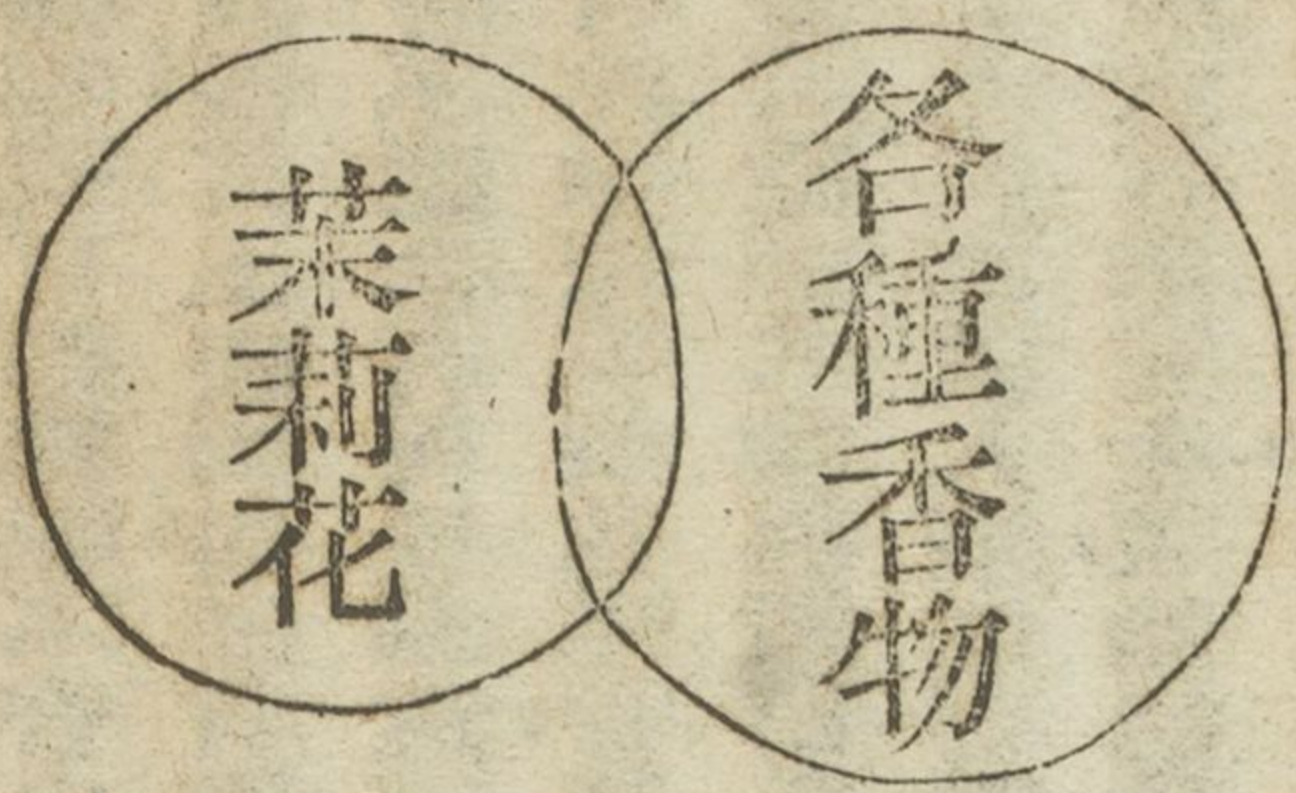 各種香物
茉莉花